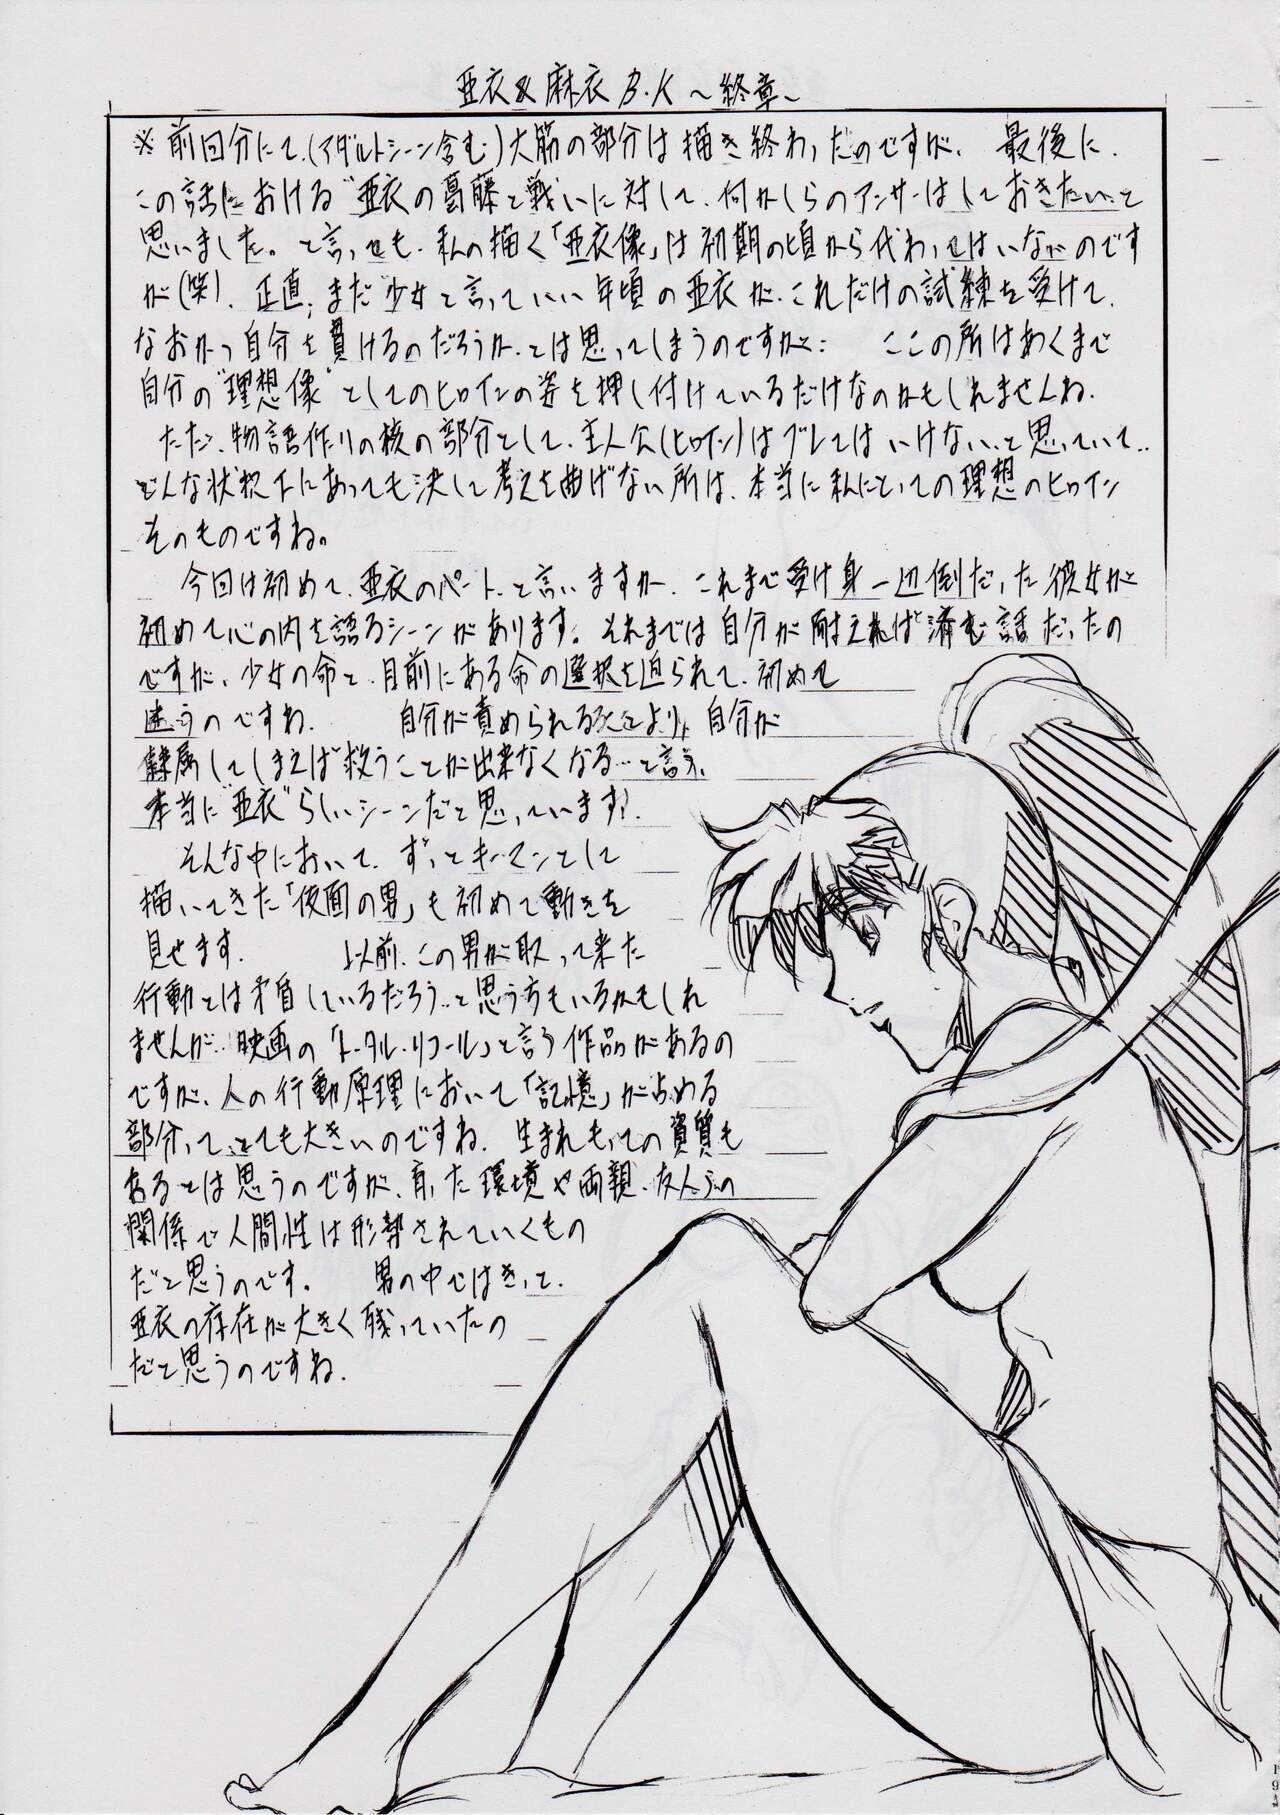 亜衣&麻衣 B.K ~終章~
※前回分にて、(アダルトシーン含む)大筋の部分は描き終わったのですが、最後に、
この話における"亜衣の葛藤と戦いに対して、何かしらのアンサーはしておきたい、と
思いました。と言っても、私の描く「亜衣像」は初期の頃から代わってはいないのです
が(笑)、正直、まだ少女と言っていい年頃の亜衣が、これだけの試練を受けて、
なおかつ自分を貫けるのだろうか、とは思ってしまうのですが… ここの所はあくまで
自分の"理想像"としてのヒロインの姿を押し付けているだけなのかもしれませんね。
ただ、物語作りの核の部分として、主人公(ヒロイン)はブレてはいけない、と思っていて…
どんな状況下にあっても決して考えを曲げない所は、本当に私にとっての理想のヒロイン
そのものですね。
今回は初めて、亜衣のパート、と言いますか、これまで受け身一辺倒だった彼女が
初めて心の内を語るシーンがあります。それまでは自分が耐えれば済む話だったの
ですが、少女の命と、目前にある命の選択を迫られて、初めて
迷うのですね。 自分が責められる事より、自分が
隷属してしまえば救うことが出来なくなる…と言う、
本当に"亜衣"らしいシーンだと思っています。
そんな中において、ずっとキーマンとして
描いてきた「仮面の男」も初めて動きを
見せます。 以前、この男が取って来た
行動とは矛盾しているだろう、と思う方もいるかもしれ
ませんが…映画の「トータル・リコール」と言う作品があるの
ですが、人の行動原理において「記憶」が占める
部分って、とても大きいのですね。生まれもっての資質も
あるとは思うのですが、育った環境や両親、友人らの
関係で人間性は形勢されていくもの
だと思うのです。 男の中ではきっと、
亜衣の存在が大きく残っていたの
だと思うのですね。